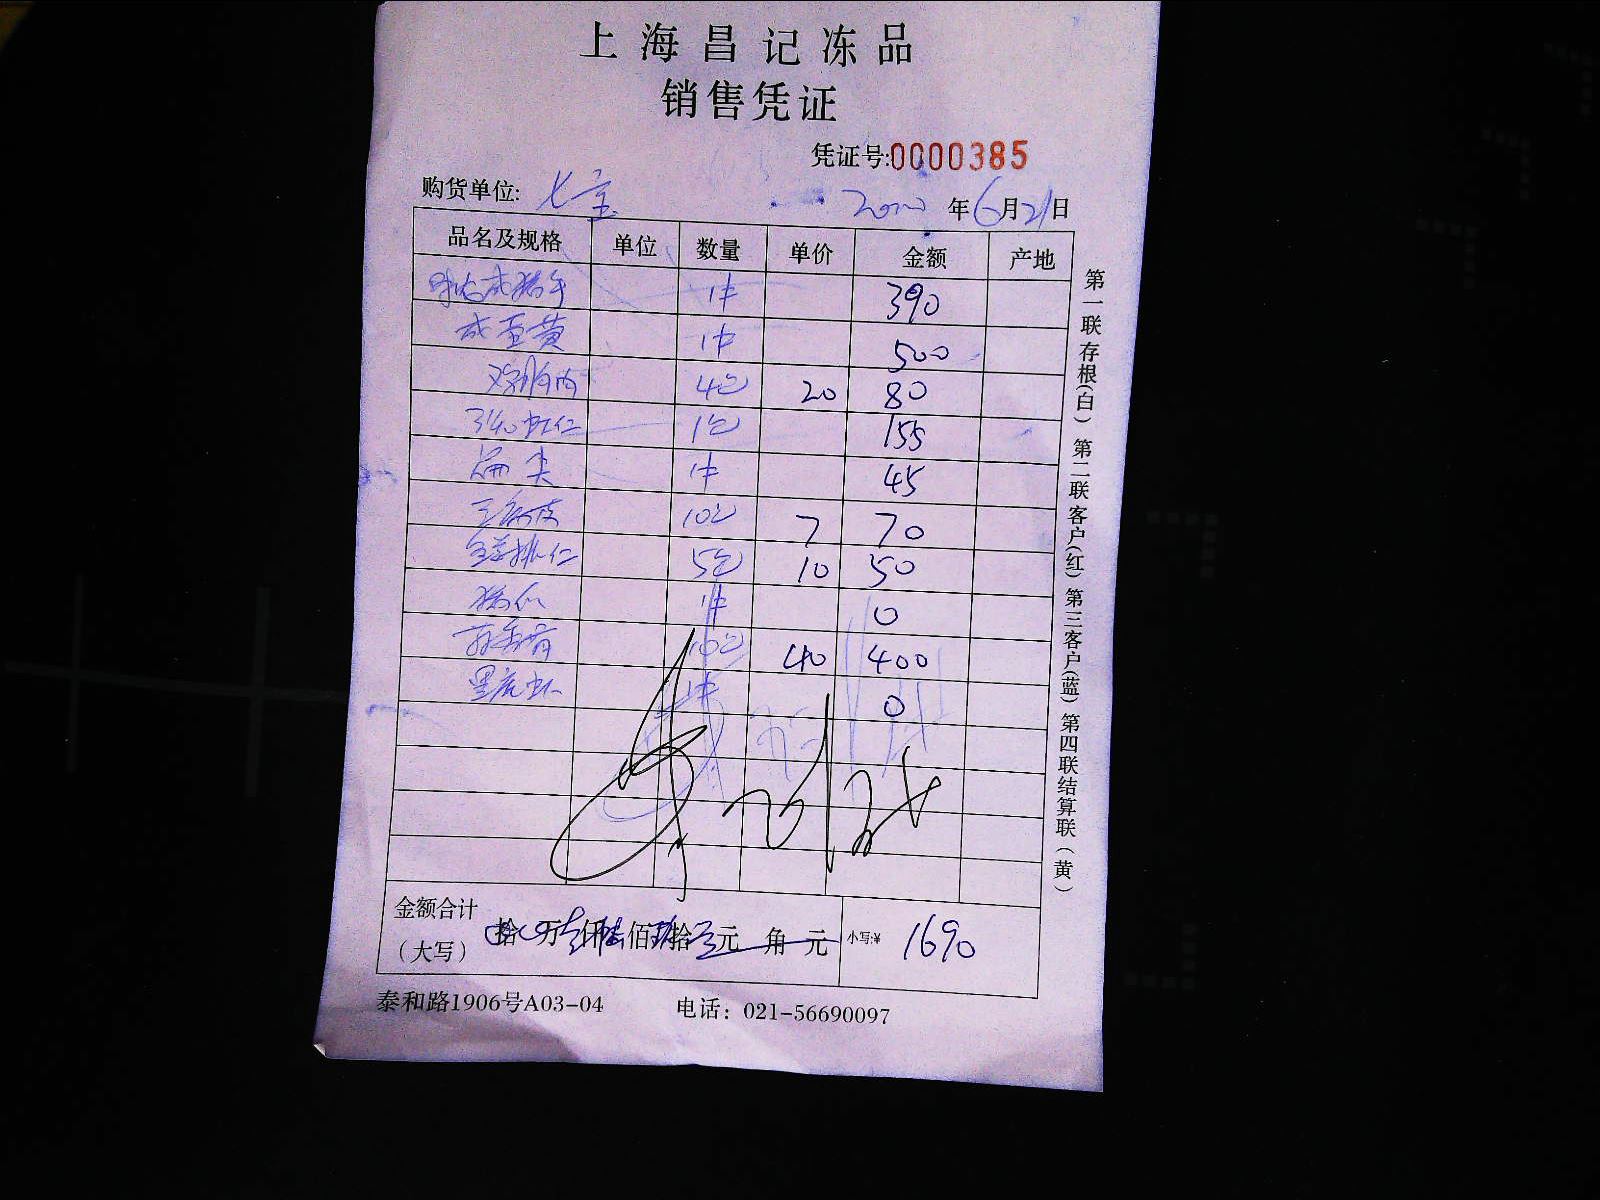 上海昌记冻品
销售凭证
凭证号:0000385
购货单位: 七宝 2020年6月21日
品名及规格 单位 数量 单价 金额 产地
咸猪手 1件 390
咸蛋黄 1件 500
鸡胸肉 4包 20 80
3140虾仁 1包 155
扁尖 1件 45
10包 7 70
5包 10 50
1件 0
10包 40 400
黑虎虾 1件 0
金额合计
(大写) 拾 万 仟 佰 拾 元 角 元 小写:¥ 1690
泰和路1906号A03-04 电话：021-56690097
第一联存根(白) 第二联客户(红) 第三客户(蓝) 第四联结算联(黄)